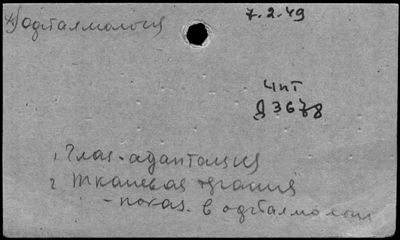 офталмология
7.2.49
Чит
Д 3678
1 Глаз-адаптация
2 Тканевая терапия
-показ. в офталмологии